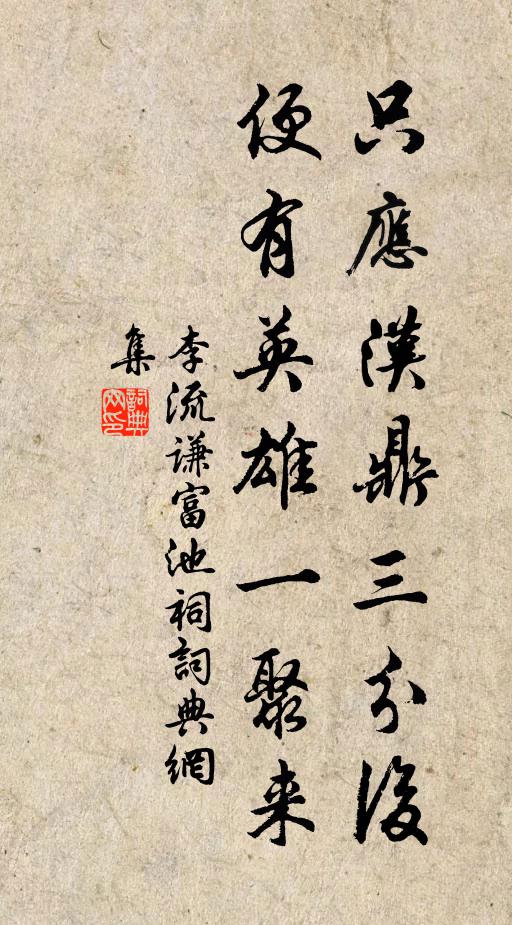 只應漢鼎三分後
便有英雄一聚来
李流謙富池祠詞典網
集
詞典網印